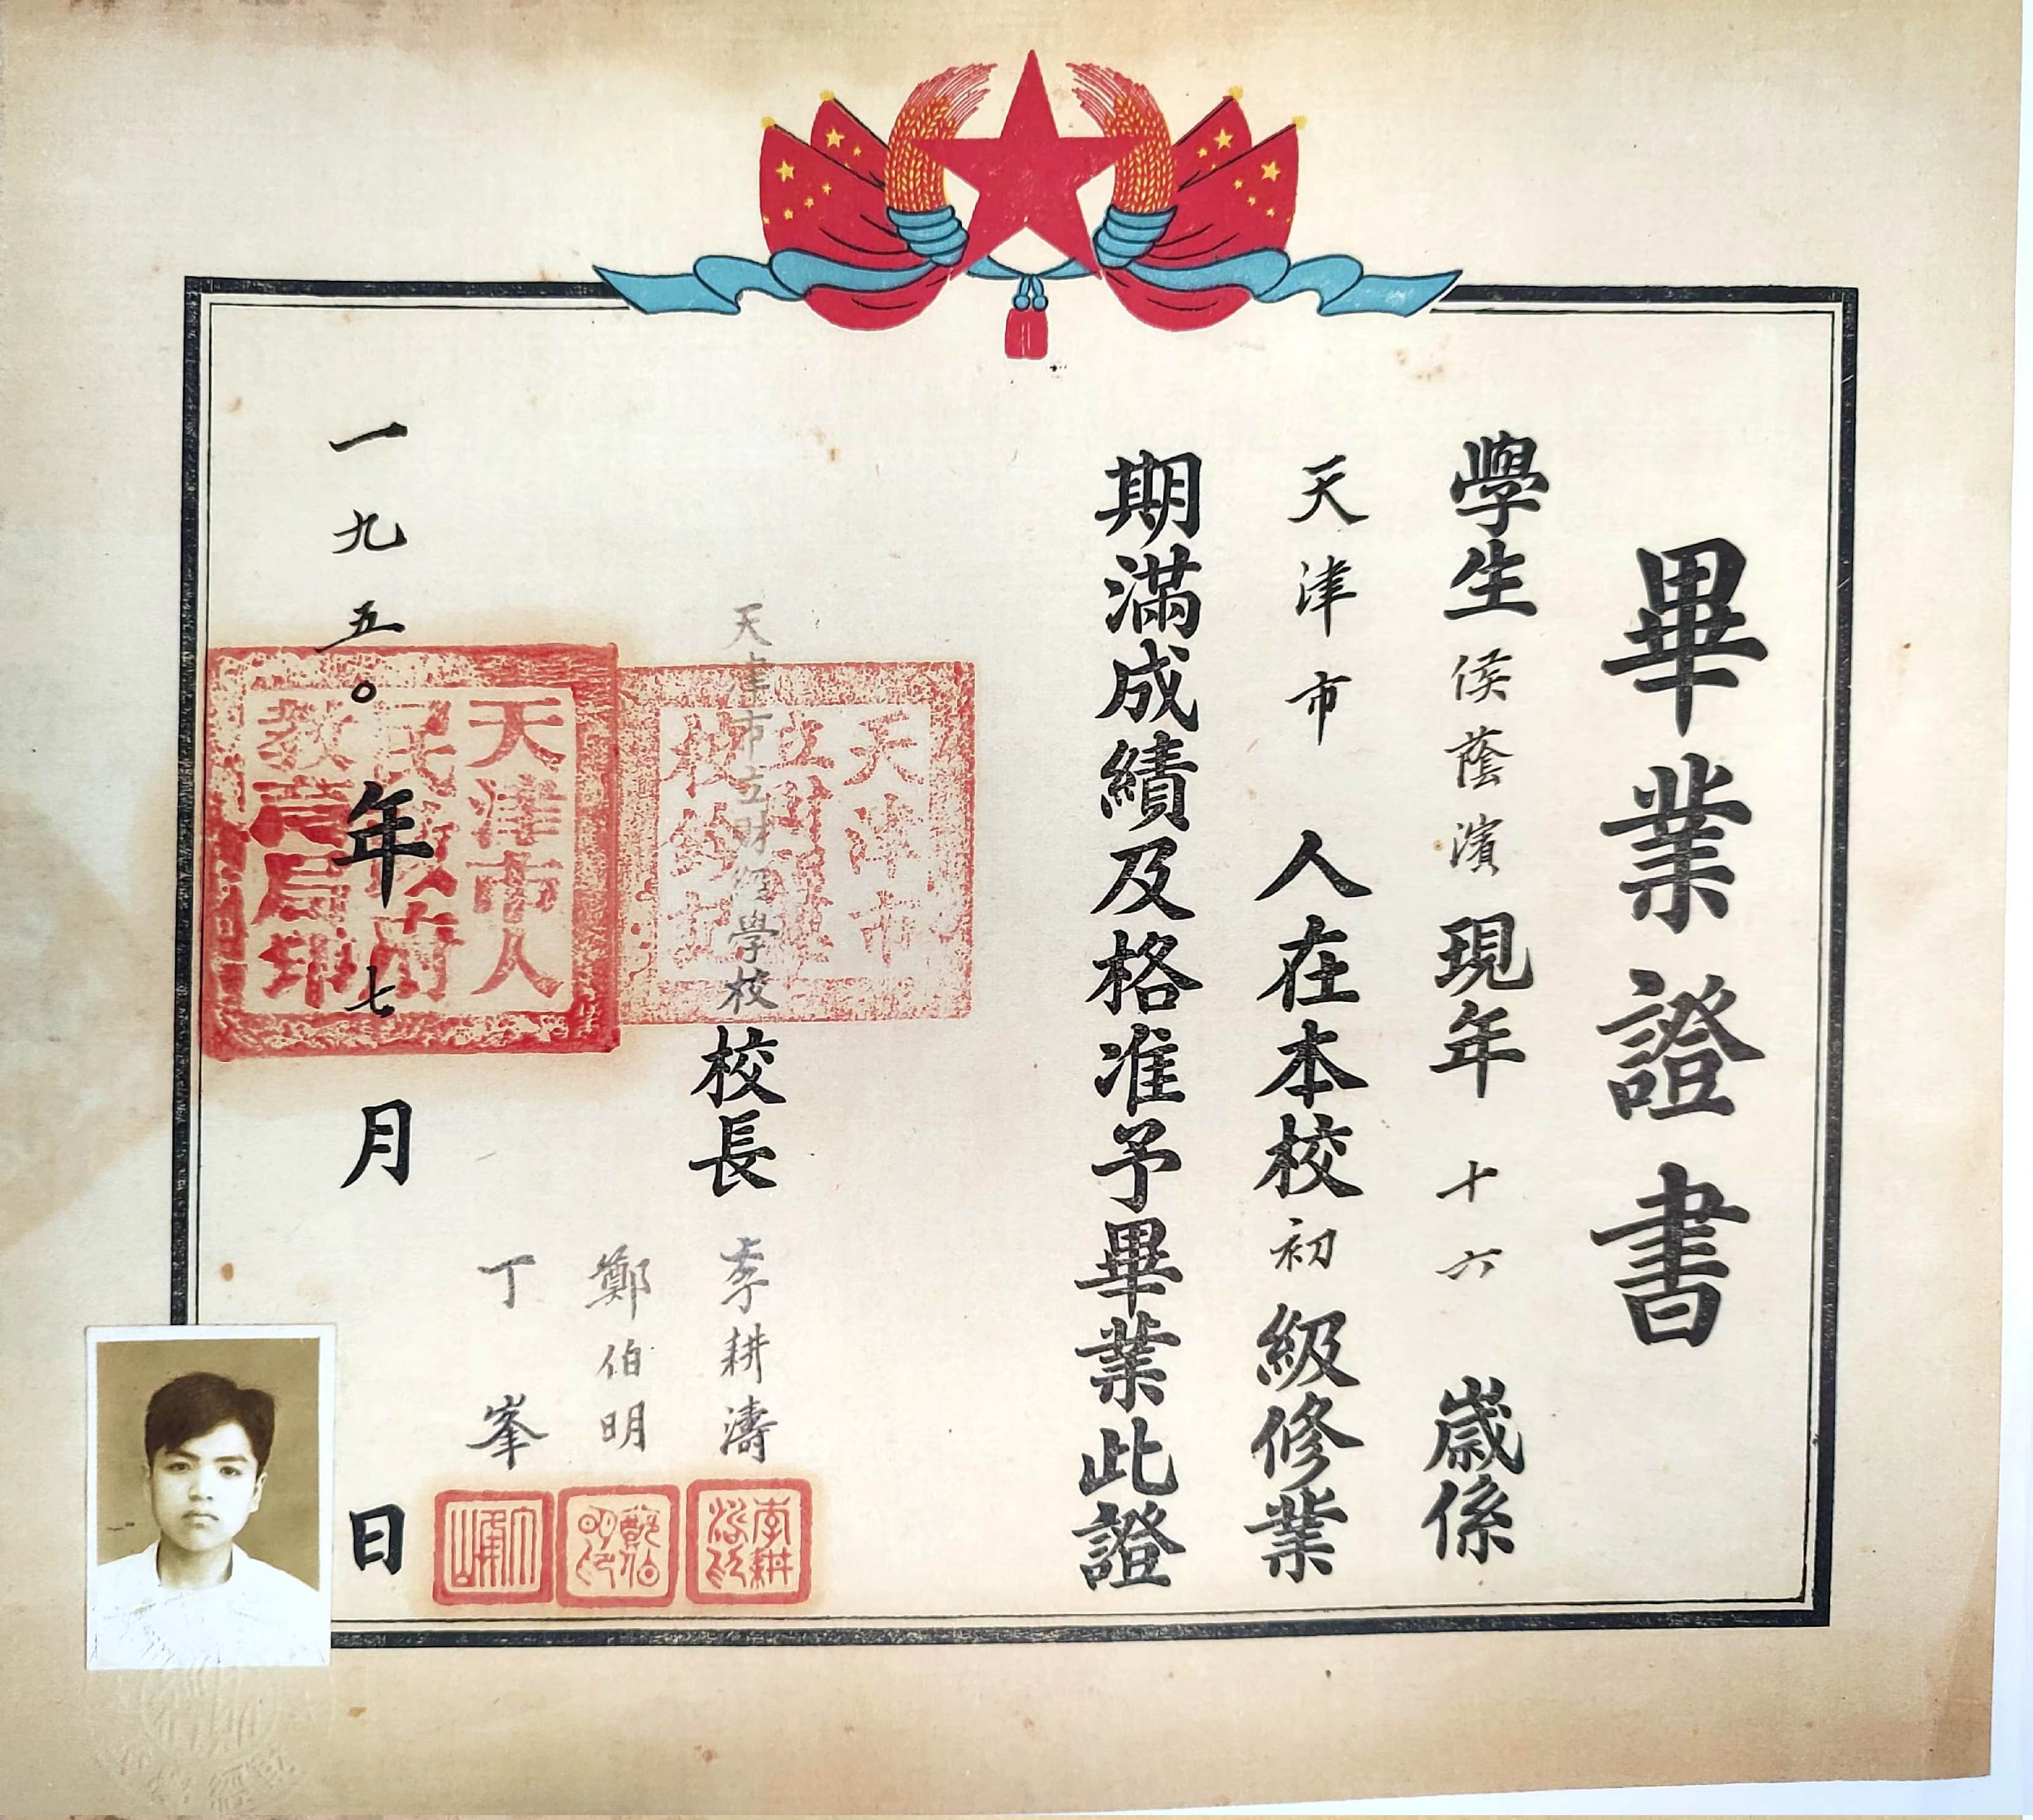 畢業證書
學生侯蔭濱現年十六歲係
天津市人在本校初級修業
期滿成績及格准予畢業此證
天津市立財經學校校長李耕濤
鄭伯明
丁峯
一九五〇年七月日
天津市
立財經
學校鈐記
天津市人
民政府
教育局印
李耕
鄭伯